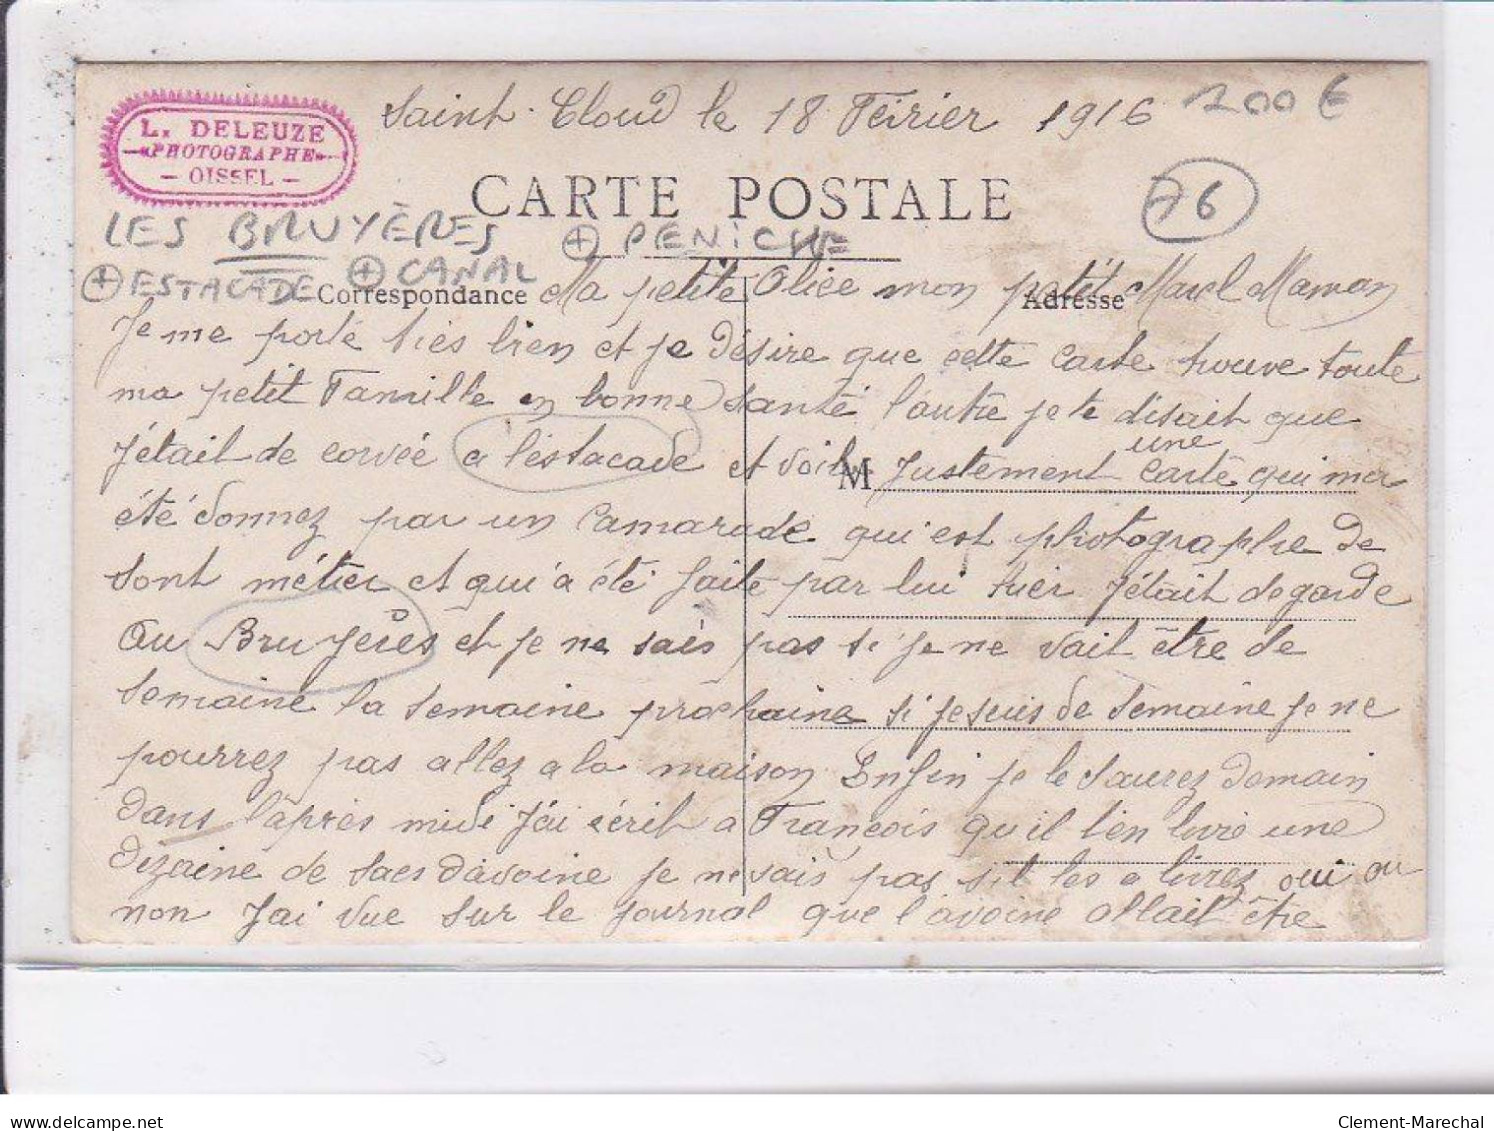 Saint-Cloud le 18 Feivrier 1916
200€
L. DELEUZE
PHOTOGRAPHE
- OISSEL -
CARTE POSTALE
76
LES BRUYÈRES + PENICHE
+ ESTACADE + CANAL
Correspondance
Adresse
Ma petite Alice mon petit Marcel Maman
Je me porte tres bien et je désire que cette carte trouve toute
ma petit Famille en bonne santé l'autre je te disait que
j'était de corvée a l'estacade et voila justement une carte qui ma
M
été donnez par un camarade qui est photographe de
sont métier et qui a été faite par lui hier j'était de garde
Au Bruyères et je ne sais pas si je ne vait être de
semaine la semaine prochaine si je suis de semaine je ne
pourrez pas allez a la maison Enfin je le saurez demain
dans l'après midi J'ai écrit a François qu'il t'en livre une
dizaine de sacs d'avoine je ne sais pas s'il les a livrez oui ou
non J'ai vue sur le journal que l'avoine allait être
Clement-Marechal
delcampe.net